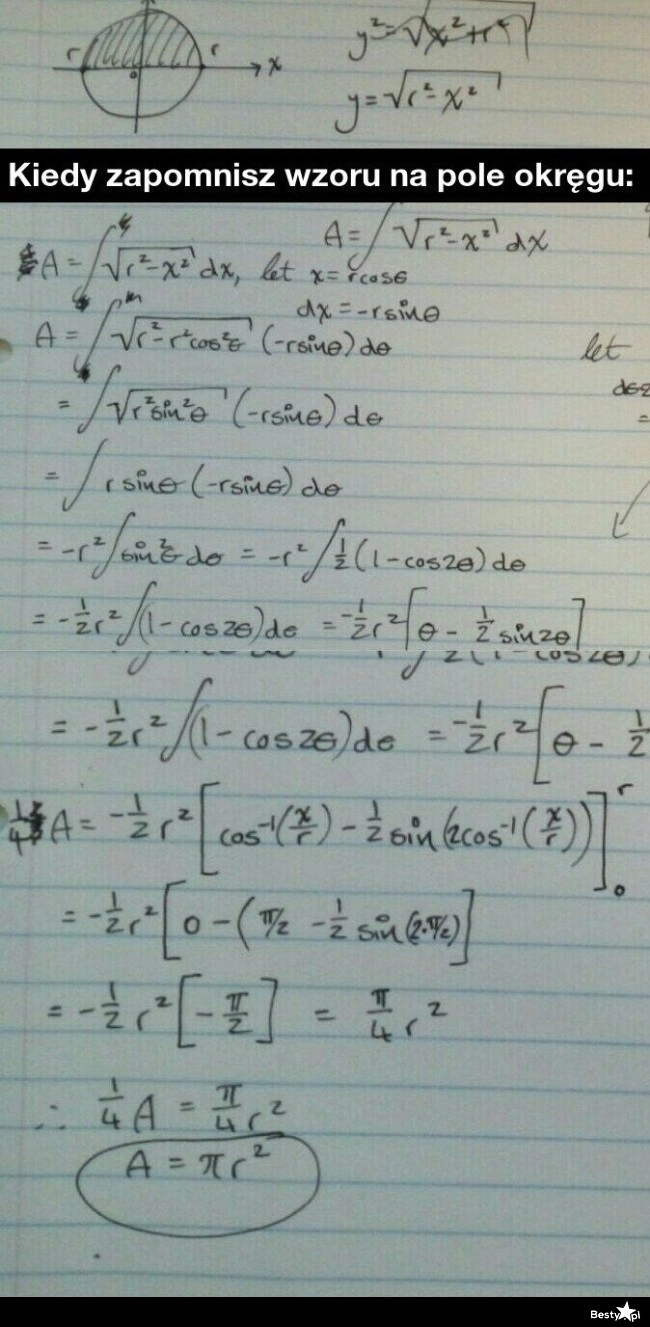 r r x
o
y²=√x²+r²
y=√r²-x²
Kiedy zapomnisz wzoru na pole okręgu:
A=∫√r²-x² dx
A=∫√r²-x² dx, let x=rcosθ
dx=-rsinθ
A=∫√r²-r²cos²θ (-rsinθ)dθ
let
=∫√r²sin²θ (-rsinθ)dθ
=∫rsinθ(-rsinθ)dθ
=-r²∫sin²θdθ = -r²∫½(1-cos2θ)dθ
=-½r²∫(1-cos2θ)dθ = -½r²[θ-½sin2θ]
=-½r²∫(1-cos2θ)dθ = -½r²[θ-½
¼A=-½r²[cos⁻¹(x/r)-½sin(2cos⁻¹(x/r))]₀ʳ
=-½r²[0-(π/2-½sin(2·π/2)]
=-½r²[-π/2] = π/4 r²
∴ ¼A=π/4 r²
A=πr²
Besty.pl